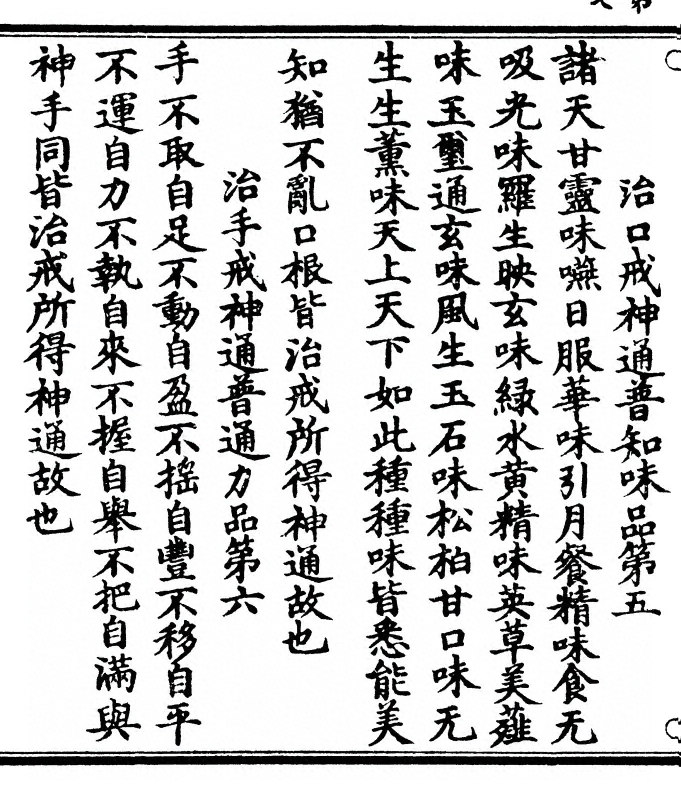 治口戒神通普知味品第五
諸天甘靈味嚥日服華味引月餐精味食无
吸光味羅生映玄味緑水黄精味英草美薤
味玉璽通玄味風生玉石味松柏甘口味无
生生薰味天上天下如此種種味皆悉能美
知猶不亂口根皆治戒所得神通故也
治手戒神通普通力品第六
手不取自足不動自盈不摇自豐不移自平
不運自力不執自來不握自舉不把自滿與
神手同皆治戒所得神通故也